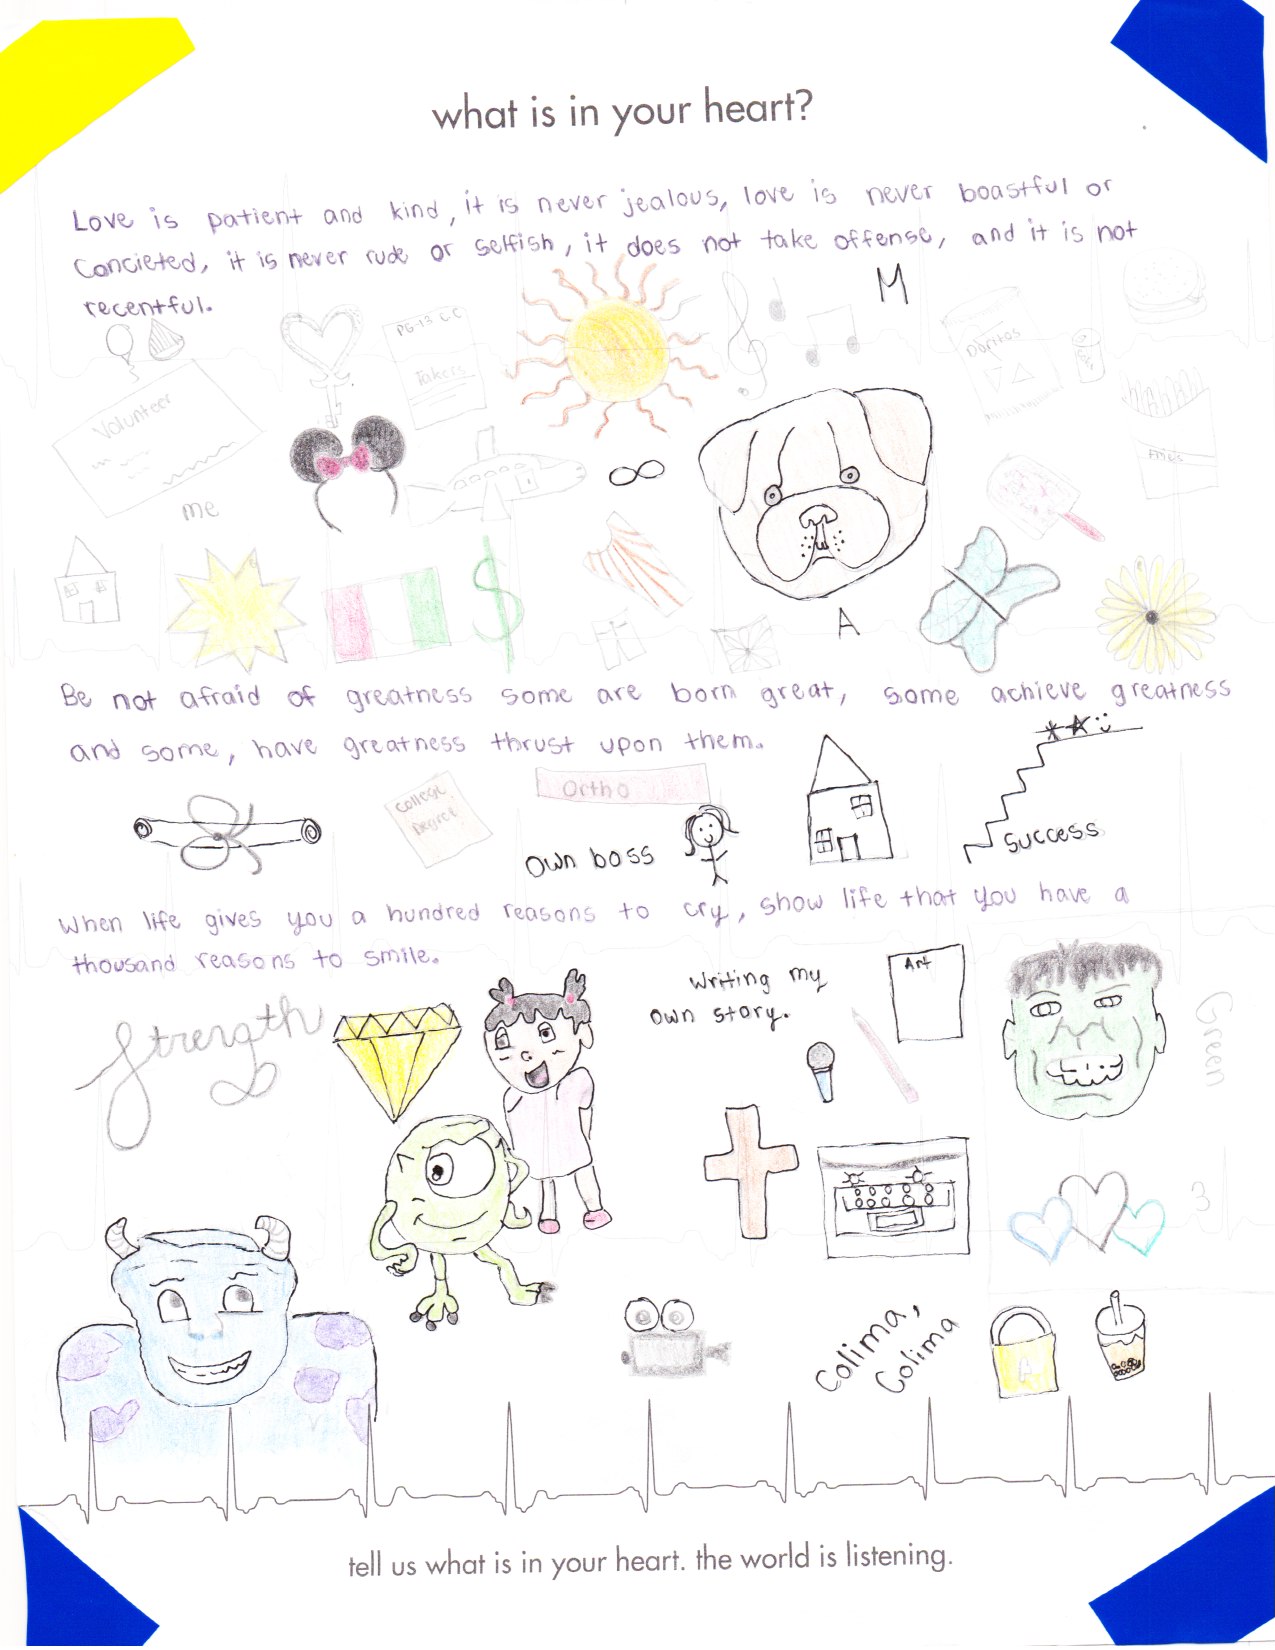 what is in your heart?
Love is patient and kind, it is never jealous, love is never boastful or
concieted, it is never rude or selfish, it does not take offense, and it is not
recentful.
M
PG-13 C.C
Takers
Doritos
Volunteer
Fries
me
A
Be not afraid of greatness some are born great, some achieve greatness
and some, have greatness thrust upon them.
College
Degree
Ortho
own boss
success
When life gives you a hundred reasons to cry, show life that you have a
thousand reasons to smile.
Strength
Writing my
own story.
Art
Green
3
Colima,
Colima
A
tell us what is in your heart. the world is listening.